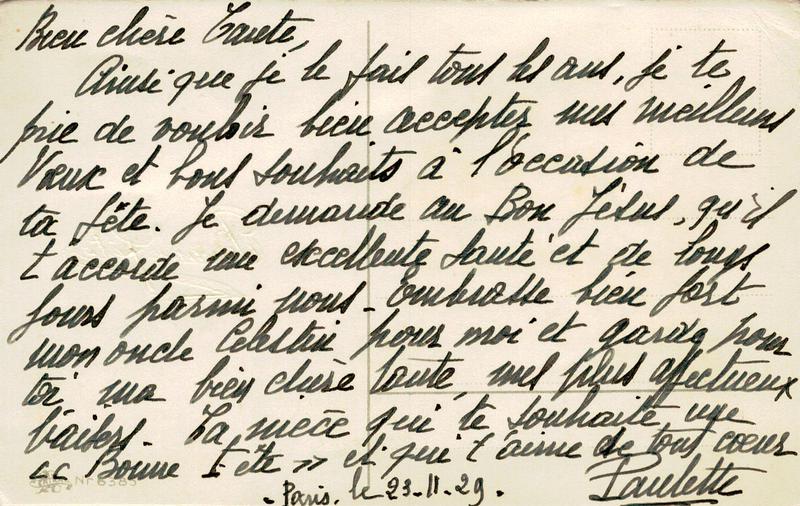 Bien chère Tante,
Ainsi que je le fais tous les ans, je te
prie de vouloir bien accepter mes meilleurs
Vœux et bons souhaits à l'occasion de
ta fête. Je demande au Bon Jésus, qu'il
t'accorde une excellente santé et de longs
jours parmi nous. Embrasse bien fort
mon oncle Célestin pour moi et garde pour
toi ma bien chère tante, mes plus affectueux
baisers. Ta nièce qui te souhaite une
<< Bonne Fête >> et qui t'aime de tout cœur
Paulette
- Paris. le 23-11-29.
Nr 6385